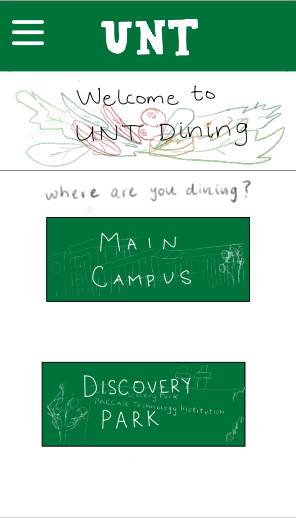 UNT
Welcome to
UNT Dining
where are you dining?
MAIN
CAMPUS
DISCOVERY
Discovery Park
PACCAR Technology Institution
PARK